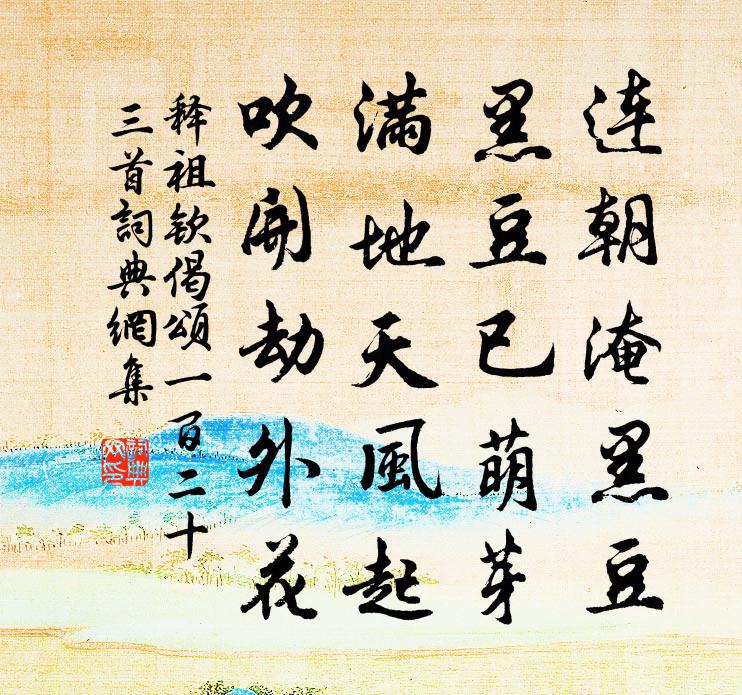 连朝淹黑豆
黑豆已萌芽
满地天風起
吹開劫外花
释祖钦偈頌一百二十
三首詞典網集